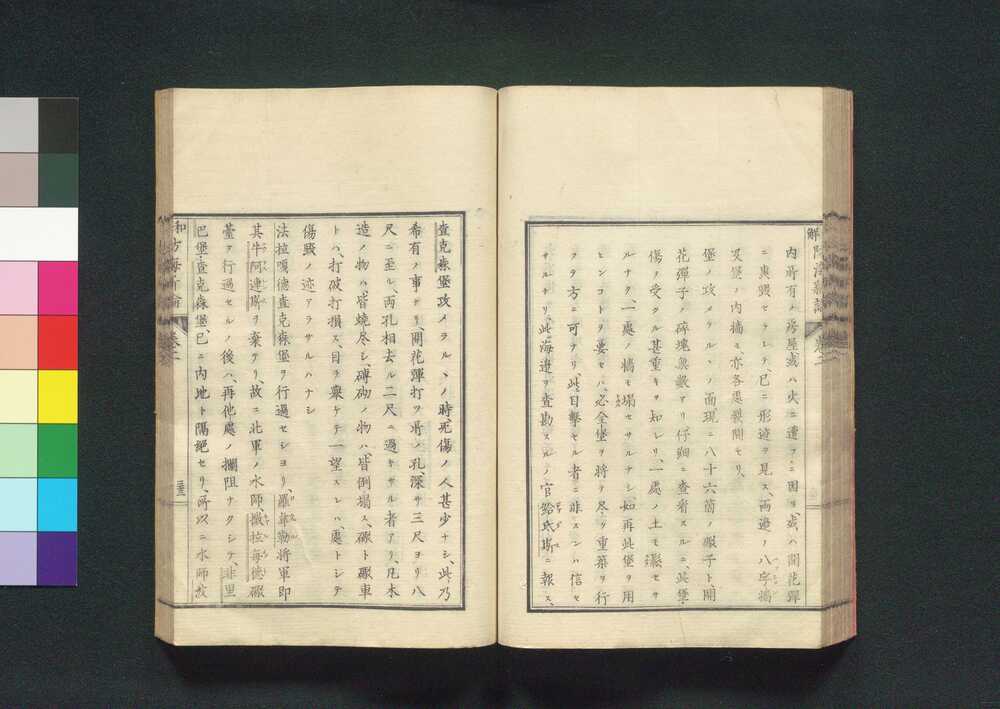 解防海新論 巻二
内所有ノ房屋或ハ火ニ遭フニ因リ、或ハ開花弾
ニ轟毀セラレテ、已ニ形迹ヲ見ス、両邊ノ八字墻
及堡ノ内墻モ、亦各悉裂開セリ、
堡ノ攻メラルヽノ面現ニ八十六箇ノ礮子ト、開
花弾子ノ碎塊無數アリ、仔細ニ査看スルニ、此堡
傷ノ受クル甚重キヲ知レリ、一處ノ土モ鬆セサ
ルナク、一處ノ墻モ塌セサルナシ、如再此堡ヲ用
ヒンコトヲ要セハ、必全堡ヲ將テ尽ク重築ヲ行
フタ方ニ可ナリ、此目撃セル者ニ非スンハ信セ
サルナリ、此海邉ヲ査勘スルノ官鉛氏斯ニ報ス、
査克森堡攻メラルヽノ時死傷ノ人甚少ナシ、此乃
希有ノ事ナリ、開花彈打ツ所ノ孔、深サ三尺ヨリ八
尺ニ至ル、両孔相去ル二尺ニ過キサル者アリ、凡木
造ノ物ハ、皆燒尽シ、磚砌ノ物ハ、皆倒塌ス、礮ト礮車
トハ、打破打損ス、目ヲ擧ケテ一望スレハ、處トシテ
傷毀ノ迹アラサルハナシ
法拉嘎德査克森堡ヲ行過セシヨリ、羅韋勒將軍即
其牛阿連斯ヲ棄テリ、故ニ北軍ノ水師、撒拉每德礮
臺ヲ行過セルノ後ハ、再他處ノ攔阻ナクシテ、非里
巴堡、査克森堡、已ニ内地ト隔絕セリ、所以ニ水師茲